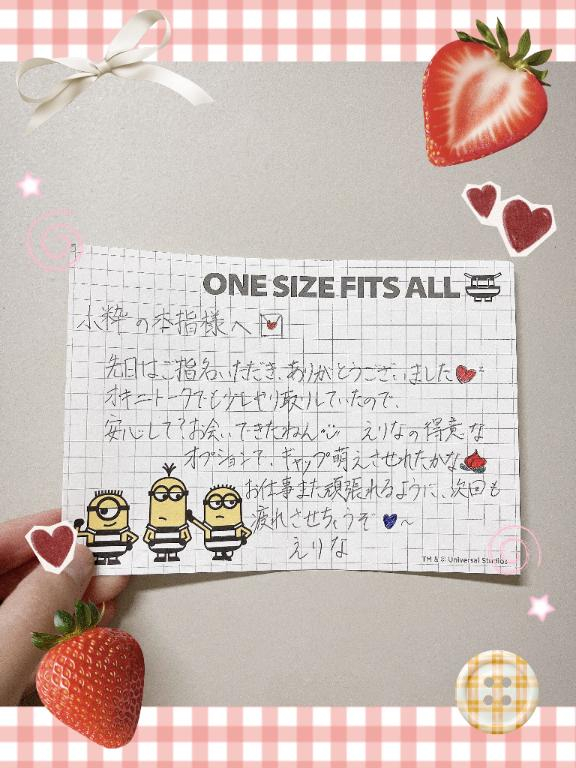 ONE SIZE FITS ALL
小粋の本指様へ
先日はご指名いただき、ありがとうございました
オキニトークでも少しやり取りしていたので、
安心してお会いできたねん えりなの得意な
オプションで、ギャップ萌えさせれたかな
お仕事また頑張れるように、次回も
疲れさせちゃうぞ ~
えりな
TM & © Universal Studios